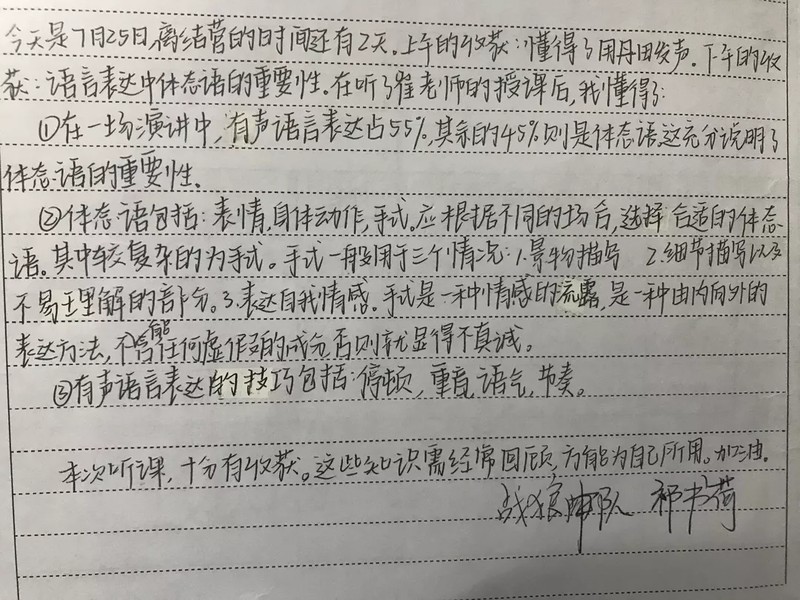 今天是7月25日,离结营的时间还有2天。上午的收获:懂得了用丹田发声。下午的收
获:语言表达中体态语的重要性。在听了崔老师的授课后,我懂得了:
①在一场演讲中,有声语言表达占55%,其余的45%则是体态语,这充分说明了
体态语的重要性。
②体态语包括:表情,自体动作,手式。应根据不同的场合,选择合适的体态
语。其中较复杂的为手式。手式一般用于三个情况:1.景物描写 2.细节描写以及
不易理解的部分。3.表达自我情感。手式是一种情感的流露,是一种由内向外的
表达方法,不能含任何虚假的成分否则就显得不真诚。
③有声语言表达的技巧包括:停顿,重音,语气,节奏。
本次听课,十分有收获。这些知识需经常回顾,方能为自己所用。加油。
战狼中队 祁书荷